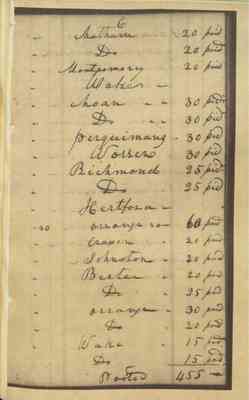 6
Chatham 20 paid
Do 20 paid
Montgomery 20 paid
Waker
Roan 30 paid
Do 30 paid
perquimans 30 paid
Warren 30 paid
Richmond 25 paid
Do 25 paid
Hertford
20 orrange 20 60 paid
Craven 20 paid
Johnston 20 paid
Bertee 20 paid
Do 25 paid
orrange 30 paid
Do 20 paid
Wake 15 paid
Do 15 paid
455